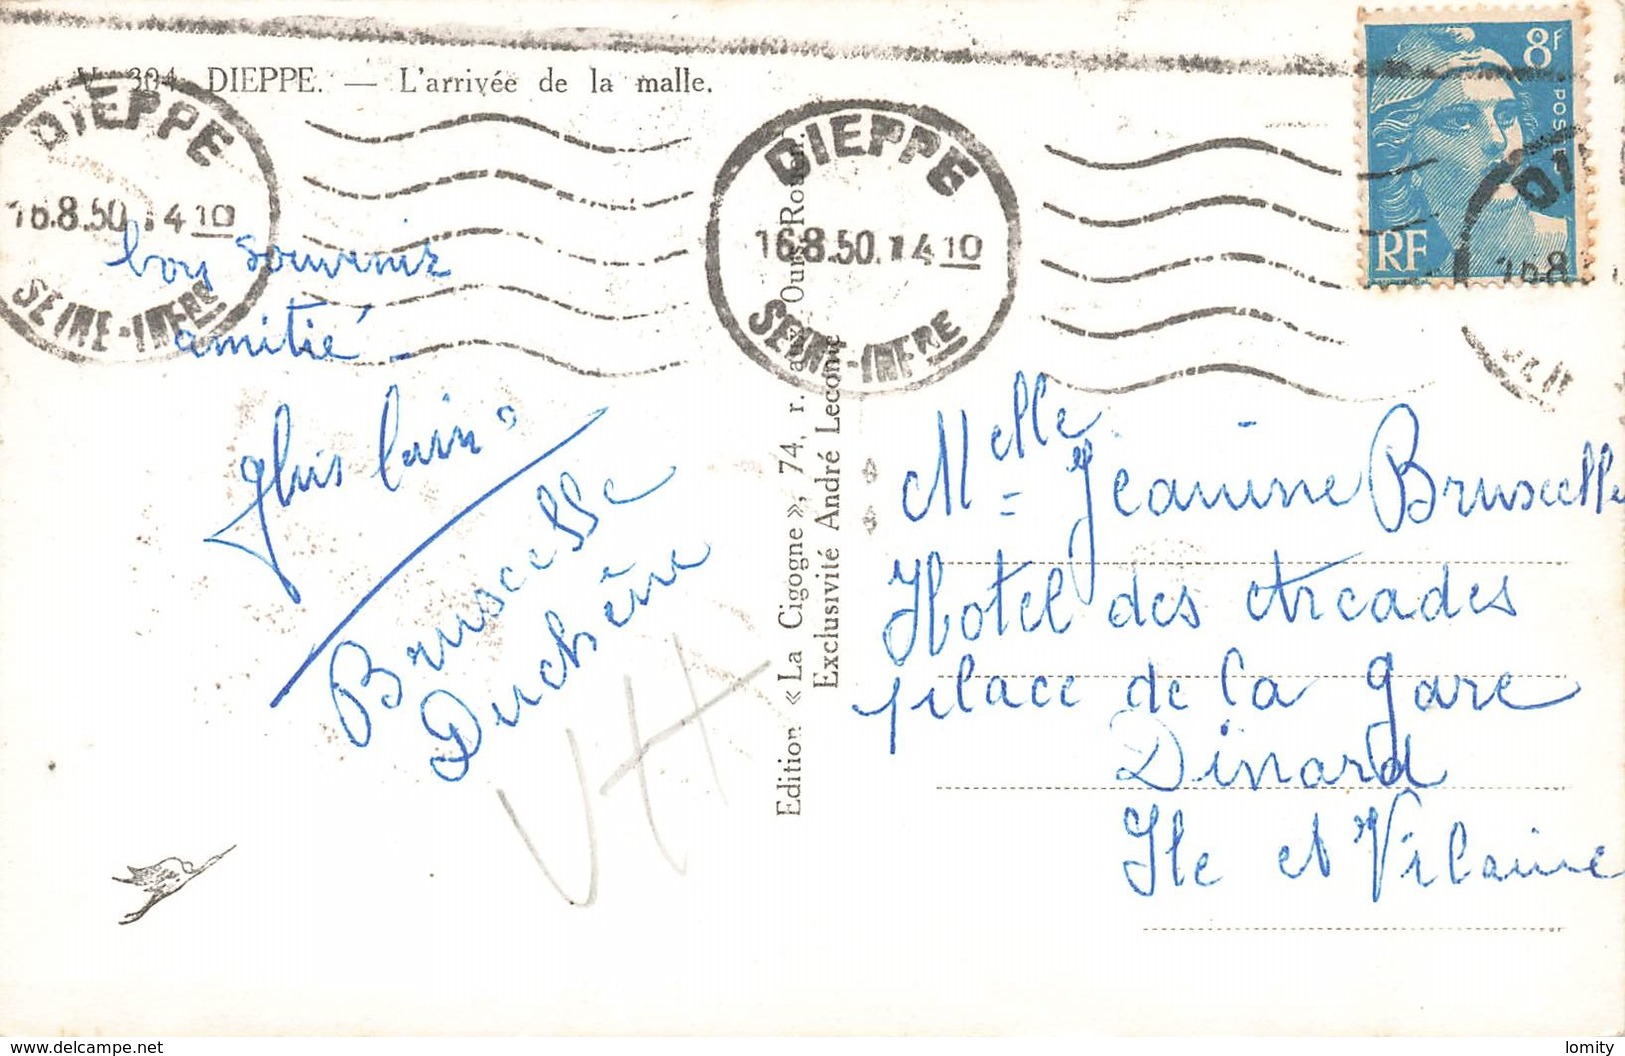 304. DIEPPE. — L'arrivée de la malle.
DIEPPE
16.8.50.14 10
SEINE-INFRE
DIEPPE
16.8.50.14 10
SEINE-INFRE
8f
POSTES
RF
16.8
bon souvenir
amitié
Ghislain
Bruscelle
Duchêne
Edition « La Cigogne », 74, r. aux Ours, Rouen
Exclusivité André Lecomte
Melle Jeanine Bruscelle
Hotel des Arcades
place de la gare
Dinard
Ile et Vilaine
www.delcampe.net
lomity